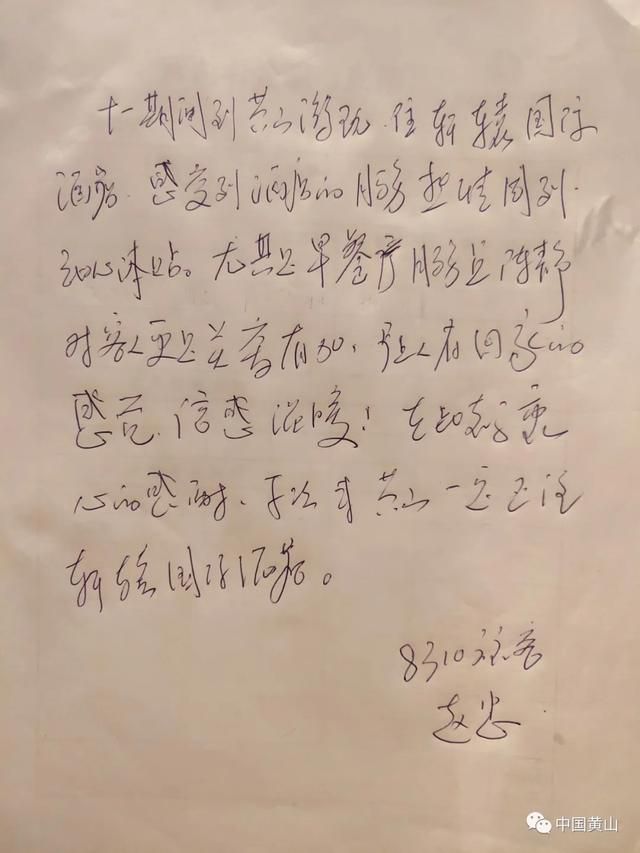 十一期间到黄山游玩.住轩辕国际
酒店.感受到酒店的服务热情周到.
细心体贴。尤其是早餐厅服务员陈静
对客人更是关爱有加，让人有回家的
感觉.倍感温暖！在此表示衷
心的感谢、下次来黄山一定还住
轩辕国际酒店。
8310房客
赵忠
中国黄山